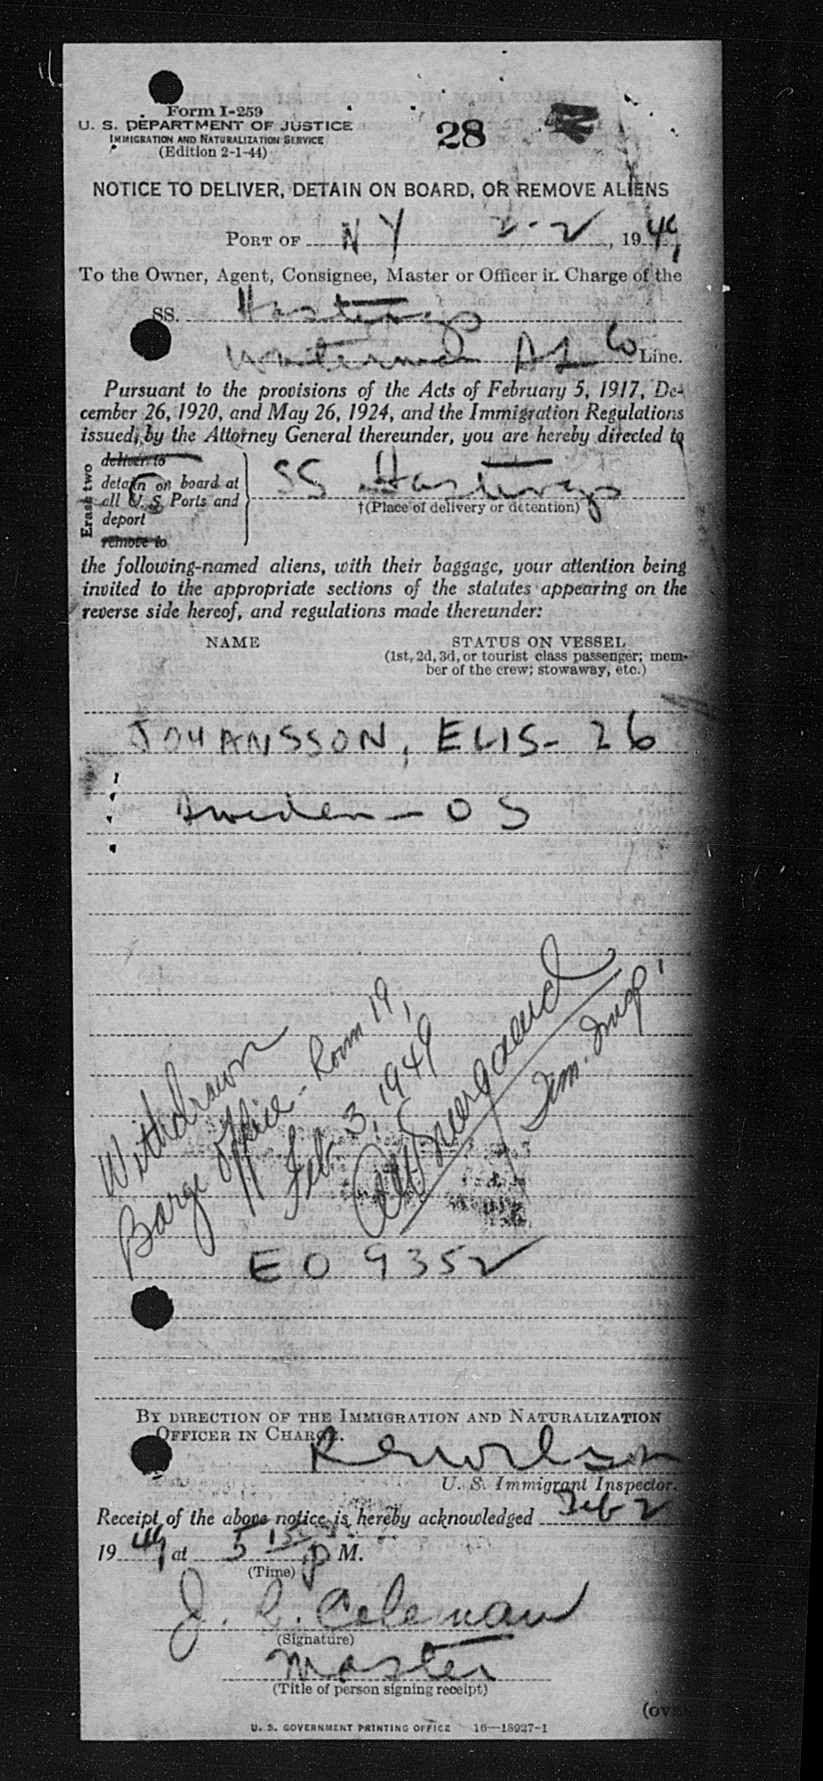 Form I-259
U. S. DEPARTMENT OF JUSTICE
IMMIGRATION AND NATURALIZATION SERVICE
(Edition 2-1-44)
28
NOTICE TO DELIVER, DETAIN ON BOARD, OR REMOVE ALIENS
PORT OF NY 2-2, 1949
To the Owner, Agent, Consignee, Master or Officer in Charge of the
SS. Hastings
Waterman SS Co Line.
Pursuant to the provisions of the Acts of February 5, 1917, De-
cember 26, 1920, and May 26, 1924, and the Immigration Regulations
issued by the Attorney General thereunder, you are hereby directed to
Erase two
deliver to
detain on board at
all U.S. Ports and
deport
remove to
SS Hastings
†(Place of delivery or detention)
the following-named aliens, with their baggage, your attention being
invited to the appropriate sections of the statutes appearing on the
reverse side hereof, and regulations made thereunder:
NAME STATUS ON VESSEL
(1st, 2d, 3d, or tourist class passenger; mem-
ber of the crew; stowaway, etc.)
JOHANSSON, ELIS- 26
Sweden - OS
Withdrawn
Barge Office - Room 19,
Feb. 3, 1949
Imm. Insp.
EO 9352
BY DIRECTION OF THE IMMIGRATION AND NATURALIZATION
OFFICER IN CHARGE.
U. S. Immigrant Inspector.
Receipt of the above notice is hereby acknowledged Feb 2
1949 at 5 15 P M.
(Time)
J. R. Coleman
(Signature)
Master
(Title of person signing receipt)
U. S. GOVERNMENT PRINTING OFFICE 16-18927-1